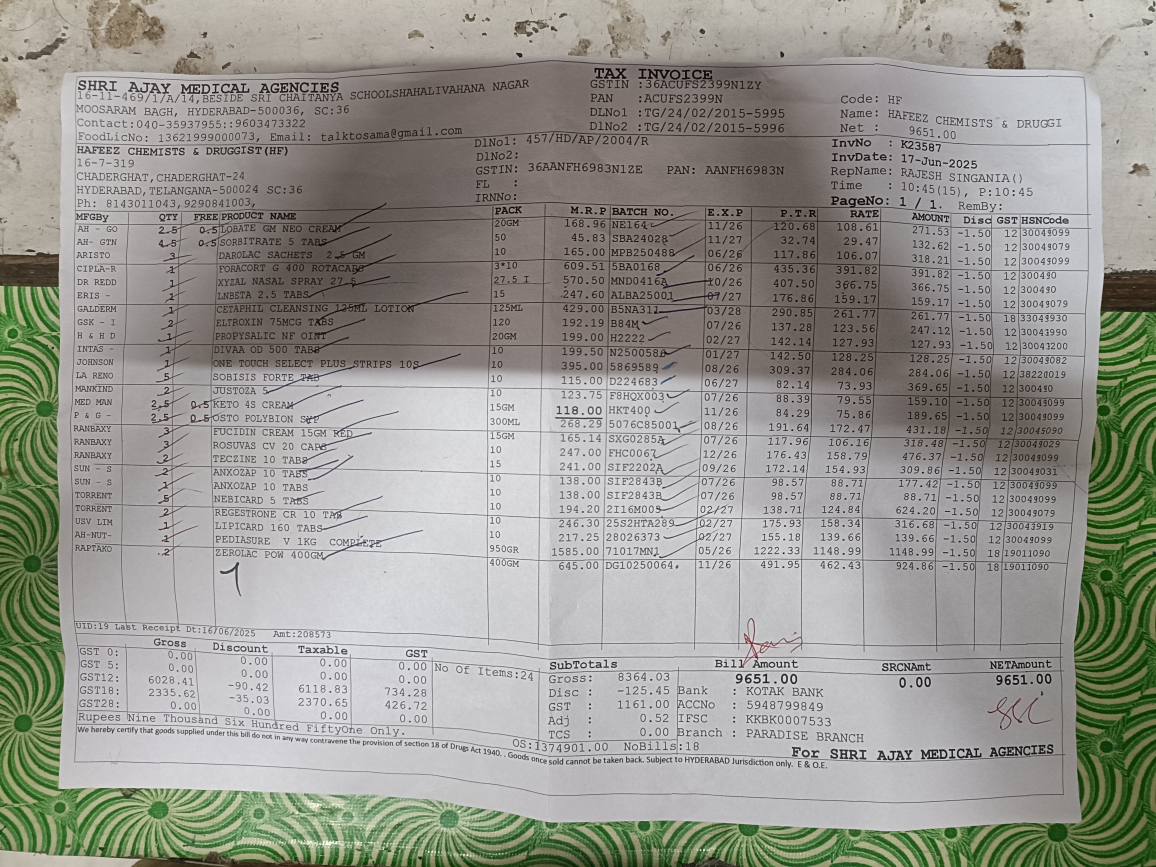 SHRI AJAY MEDICAL AGENCIES
16-11-469/1/A/14,BESIDE SRI CHAITANYA SCHOOLSHAHALIVAHANA NAGAR
MOOSARAM BAGH, HYDERABAD-500036, SC:36
Contact:040-35937955::9603473322
FoodLicNo: 13621999000073, Email: talktosama@gmail.com
TAX INVOICE
GSTIN :36ACUFS2399N1ZY
PAN :ACUFS2399N
DLNo1 :TG/24/02/2015-5995
DlNo2 :TG/24/02/2015-5996
Code: HF
Name: HAFEEZ CHEMISTS & DRUGGI
Net : 9651.00
HAFEEZ CHEMISTS & DRUGGIST(HF)
16-7-319
CHADERGHAT,CHADERGHAT-24
HYDERABAD,TELANGANA-500024 SC:36
Ph: 8143011043,9290841003,
DlNo1: 457/HD/AP/2004/R
DlNo2:
GSTIN: 36AANFH6983N1ZE PAN: AANFH6983N
FL :
IRNNo:
InvNo : K23587
InvDate: 17-Jun-2025
RepName: RAJESH SINGANIA()
Time : 10:45(15), P:10:45
PageNo: 1 / 1. RemBy:
MFGBy QTY FREE PRODUCT NAME PACK M.R.P BATCH NO. E.X.P P.T.R RATE AMOUNT Disc GST HSNCode
AH - GO 2.5 0.5 LOBATE GM NEO CREAM 20GM 168.96 NE164 11/26 120.68 108.61 271.53 -1.50 12 30049099
AH- GTN 4.5 0.5 SORBITRATE 5 TABS 50 45.83 SBA24028 11/27 32.74 29.47 132.62 -1.50 12 30049079
ARISTO 3 DAROLAC SACHETS 2.5 GM 10 165.00 MPB250488 06/26 117.86 106.07 318.21 -1.50 12 30049099
CIPLA-R 1 FORACORT G 400 ROTACAPS 3*10 609.51 5BA0168 06/26 435.36 391.82 391.82 -1.50 12 300490
DR REDD 1 XYZAL NASAL SPRAY 27.5 27.5 I 570.50 MND0416A 10/26 407.50 366.75 366.75 -1.50 12 300490
ERIS - 1 LNBETA 2.5 TABS 15 247.60 ALBA25001 07/27 176.86 159.17 159.17 -1.50 12 30049079
GALDERM 1 CETAPHIL CLEANSING 125ML LOTION 125ML 429.00 B5NA311 03/28 290.85 261.77 261.77 -1.50 18 33049930
GSK - I 2 ELTROXIN 75MCG TABS 120 192.19 B84M 07/26 137.28 123.56 247.12 -1.50 12 30043990
H & H D 1 PROPYSALIC NF OINT 20GM 199.00 H2222 02/27 142.14 127.93 127.93 -1.50 12 30043200
INTAS - 1 DIVAA OD 500 TABS 10 199.50 N250058B 01/27 142.50 128.25 128.25 -1.50 12 30049082
JOHNSON 1 ONE TOUCH SELECT PLUS STRIPS 10S 10 395.00 5869589 08/26 309.37 284.06 284.06 -1.50 12 38220019
LA RENO 5 SOBISIS FORTE TAB 10 115.00 D224683 06/27 82.14 73.93 369.65 -1.50 12 300490
MANKIND 2 JUSTOZA 5 10 123.75 F8HQX003 07/26 88.39 79.55 159.10 -1.50 12 30049099
MED MAN 2.5 0.5 KETO 4S CREAM 15GM 118.00 HKT400 11/26 84.29 75.86 189.65 -1.50 12 30049099
P & G - 2.5 0.5 OSTO POLYBION SYP 300ML 268.29 5076C85001 08/26 191.64 172.47 431.18 -1.50 12 30045090
RANBAXY 3 FUCIDIN CREAM 15GM RED 15GM 165.14 SXG0285A 07/26 117.96 106.16 318.48 -1.50 12 30049029
RANBAXY 3 ROSUVAS CV 20 CAPS 10 247.00 FHC0067 12/26 176.43 158.79 476.37 -1.50 12 30049099
RANBAXY 2 TECZINE 10 TABS 15 241.00 SIF2202A 09/26 172.14 154.93 309.86 -1.50 12 30049031
SUN - S 2 ANXOZAP 10 TABS 10 138.00 SIF2843B 07/26 98.57 88.71 177.42 -1.50 12 30049099
SUN - S 1 ANXOZAP 10 TABS 10 138.00 SIF2843B 07/26 98.57 88.71 88.71 -1.50 12 30049099
TORRENT 5 NEBICARD 5 TABS 10 194.20 2I16M009 02/27 138.71 124.84 624.20 -1.50 12 30049079
TORRENT 2 REGESTRONE CR 10 TAB 10 246.30 25S2HTA289 02/27 175.93 158.34 316.68 -1.50 12 30043919
USV LIM 1 LIPICARD 160 TABS 10 217.25 28026373 02/27 155.18 139.66 139.66 -1.50 12 30049099
AH-NUT- 1 PEDIASURE V 1KG COMPLETE 950GR 1585.00 71017MN1 05/26 1222.33 1148.99 1148.99 -1.50 18 19011090
RAPTAKO 2 ZEROLAC POW 400GM 400GM 645.00 DG10250064 11/26 491.95 462.43 924.86 -1.50 18 19011090
1
UID:19 Last Receipt Dt:16/06/2025 Amt:208573
Gross Discount Taxable GST
GST 0: 0.00 0.00 0.00 0.00
GST 5: 0.00 0.00 0.00 0.00
GST12: 6028.41 -90.42 6118.83 734.28
GST18: 2335.62 -35.03 2370.65 426.72
GST28: 0.00 0.00 0.00 0.00
No Of Items:24
SubTotals Bill Amount SRCNAmt NETAmount
Gross: 8364.03 9651.00 0.00 9651.00
Disc : -125.45 Bank : KOTAK BANK
GST : 1161.00 ACCNo : 5948799849
Adj : 0.52 IFSC : KKBK0007533
TCS : 0.00 Branch : PARADISE BRANCH
Rupees Nine Thousand Six Hundred FiftyOne Only.
OS:1374901.00 NoBills:18
For SHRI AJAY MEDICAL AGENCIES
We hereby certify that goods supplied under this bill do not in any way contravene the provision of section 18 of Drugs Act 1940. . Goods once sold cannot be taken back. Subject to HYDERABAD Jurisdiction only. E & O.E.